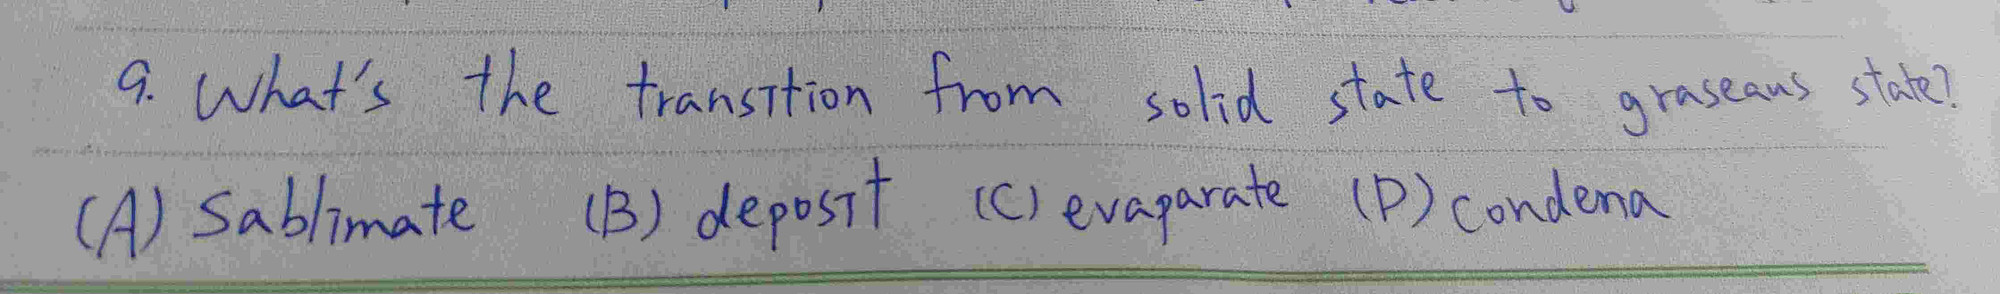 9. What's the transition from solid state to graseaus state?
(A) Sablimate (B) deposit (C) evaparate (D) condena